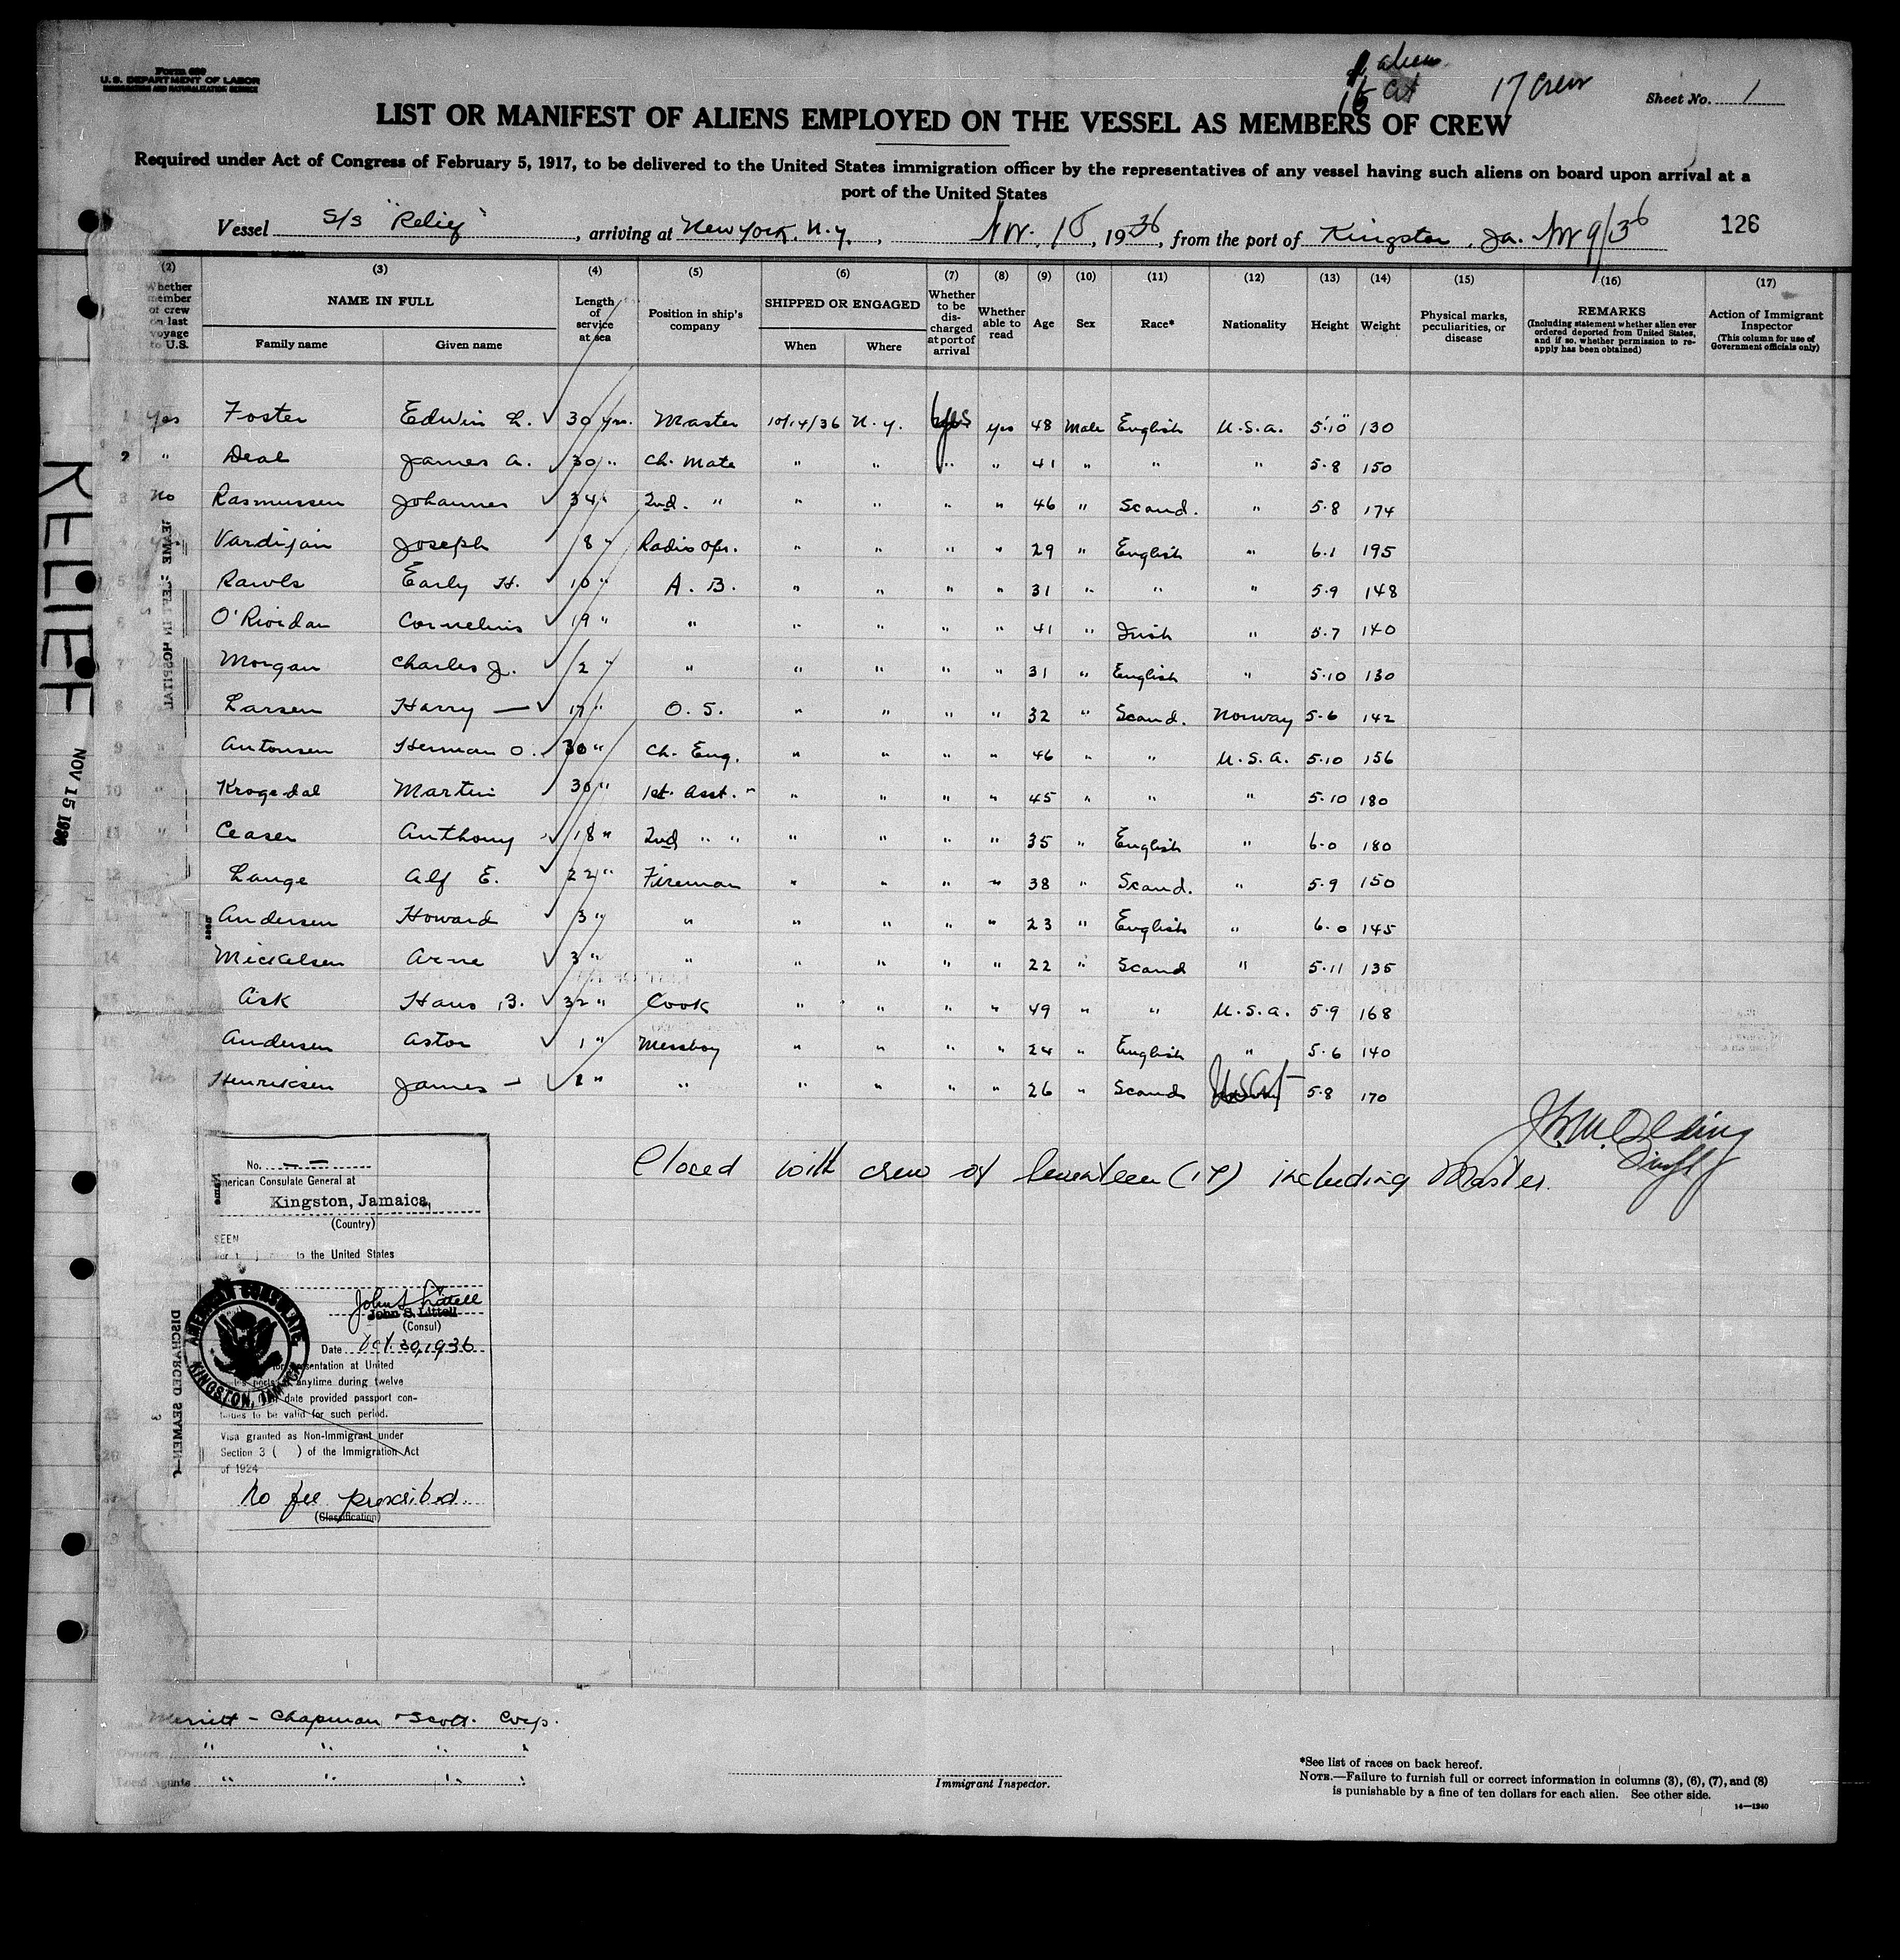 Form 680
U. S. DEPARTMENT OF LABOR
IMMIGRATION AND NATURALIZATION SERVICE
aliens
17 Crew
Sheet No. 1
LIST OR MANIFEST OF ALIENS EMPLOYED ON THE VESSEL AS MEMBERS OF CREW
Required under Act of Congress of February 5, 1917, to be delivered to the United States immigration officer by the representatives of any vessel having such aliens on board upon arrival at a
port of the United States
Vessel S/S "Relief", arriving at New York, N.Y., Nov. 15, 1936, from the port of Kingston, Ja. Nov 9/36 126
(2) (3) (4) (5) (6) (7) (8) (9) (10) (11) (12) (13) (14) (15) (16) (17)
Whether member of crew on last voyage to U.S.
NAME IN FULL
Family name Given name
Length of service at sea
Position in ship's company
SHIPPED OR ENGAGED
When Where
Whether to be discharged at port of arrival
Whether able to read
Age
Sex
Race*
Nationality
Height
Weight
Physical marks, peculiarities, or disease
REMARKS
(Including statement whether alien ever ordered deported from United States, and if so, whether permission to re-apply has been obtained)
Action of Immigrant Inspector
(This column for use of Government officials only)
1 Yes Foster Edwin L. 30 yrs. Master 10/14/36 N.Y. yes yes 48 Male English U.S.A. 5'10" 130
2 " Deal James A. 30 " Ch. Mate " " " " 41 " " " 5-8 150
3 No Rasmussen Johannes 34 " 2nd. " " " " " 46 " Scand. " 5-8 174
Vardijan Joseph 8 " Radio Opr. " " " " 29 " English " 6-1 195
5 Rawls Early H. 10 " A. B. " " " " 31 " " " 5-9 148
6 O'Riordan Cornelius 19 " " " " " " 41 " Irish " 5-7 140
7 Morgan Charles J. 2 " " " " " " 31 " English " 5-10 130
8 Larsen Harry — 17 " O. S. " " " " 32 " Scand. Norway 5-6 142
9 " Antonsen Herman O. 30 " Ch. Eng. " " " " 46 " " U.S.A. 5-10 156
10 " Krogedal Martin 30 " 1st. Asst. " " " " " 45 " " " 5-10 180
11 " Ceaser Anthony 18 " 2nd " " " " " " 35 " English " 6-0 180
12 Lange Alf E. 22 " Fireman " " " " 38 " Scand. " 5-9 150
Andersen Howard 3 " " " " " " 23 " English " 6-0 145
14 Mickelsen Arne 3 " " " " " " 22 " Scand " 5-11 135
15 Ask Hans B. 32 " Cook " " " " 49 " " U.S.A. 5-9 168
Andersen Astor 1 " Messboy " " " " 24 " English " 5-6 140
No Henriksen James — " " " " " " 26 " Scand USA 5-8 170
Closed with crew of seventeen (17) including Master.
No. — —
American Consulate General at
Kingston, Jamaica,
(Country)
SEEN
to the United States
John S. Littell
John S. Littell
(Consul)
Date Oct. 30, 1936
presentation at United
anytime during twelve
date provided passport con-
tinues to be valid for such period.
Visa granted as Non-Immigrant under
Section 3 ( ) of the Immigration Act
of 1924
No fee prescribed.
(Classification)
AMERICAN CONSULATE
KINGSTON, JAMAICA
RELIEF
NOV 15 1936
DISCHARGED SEAMEN
Merritt-Chapman & Scott. Corp.
Owners " " " "
Local Agents " " " "
Immigrant Inspector.
*See list of races on back hereof.
NOTE.—Failure to furnish full or correct information in columns (3), (6), (7), and (8)
is punishable by a fine of ten dollars for each alien. See other side.
14—1240